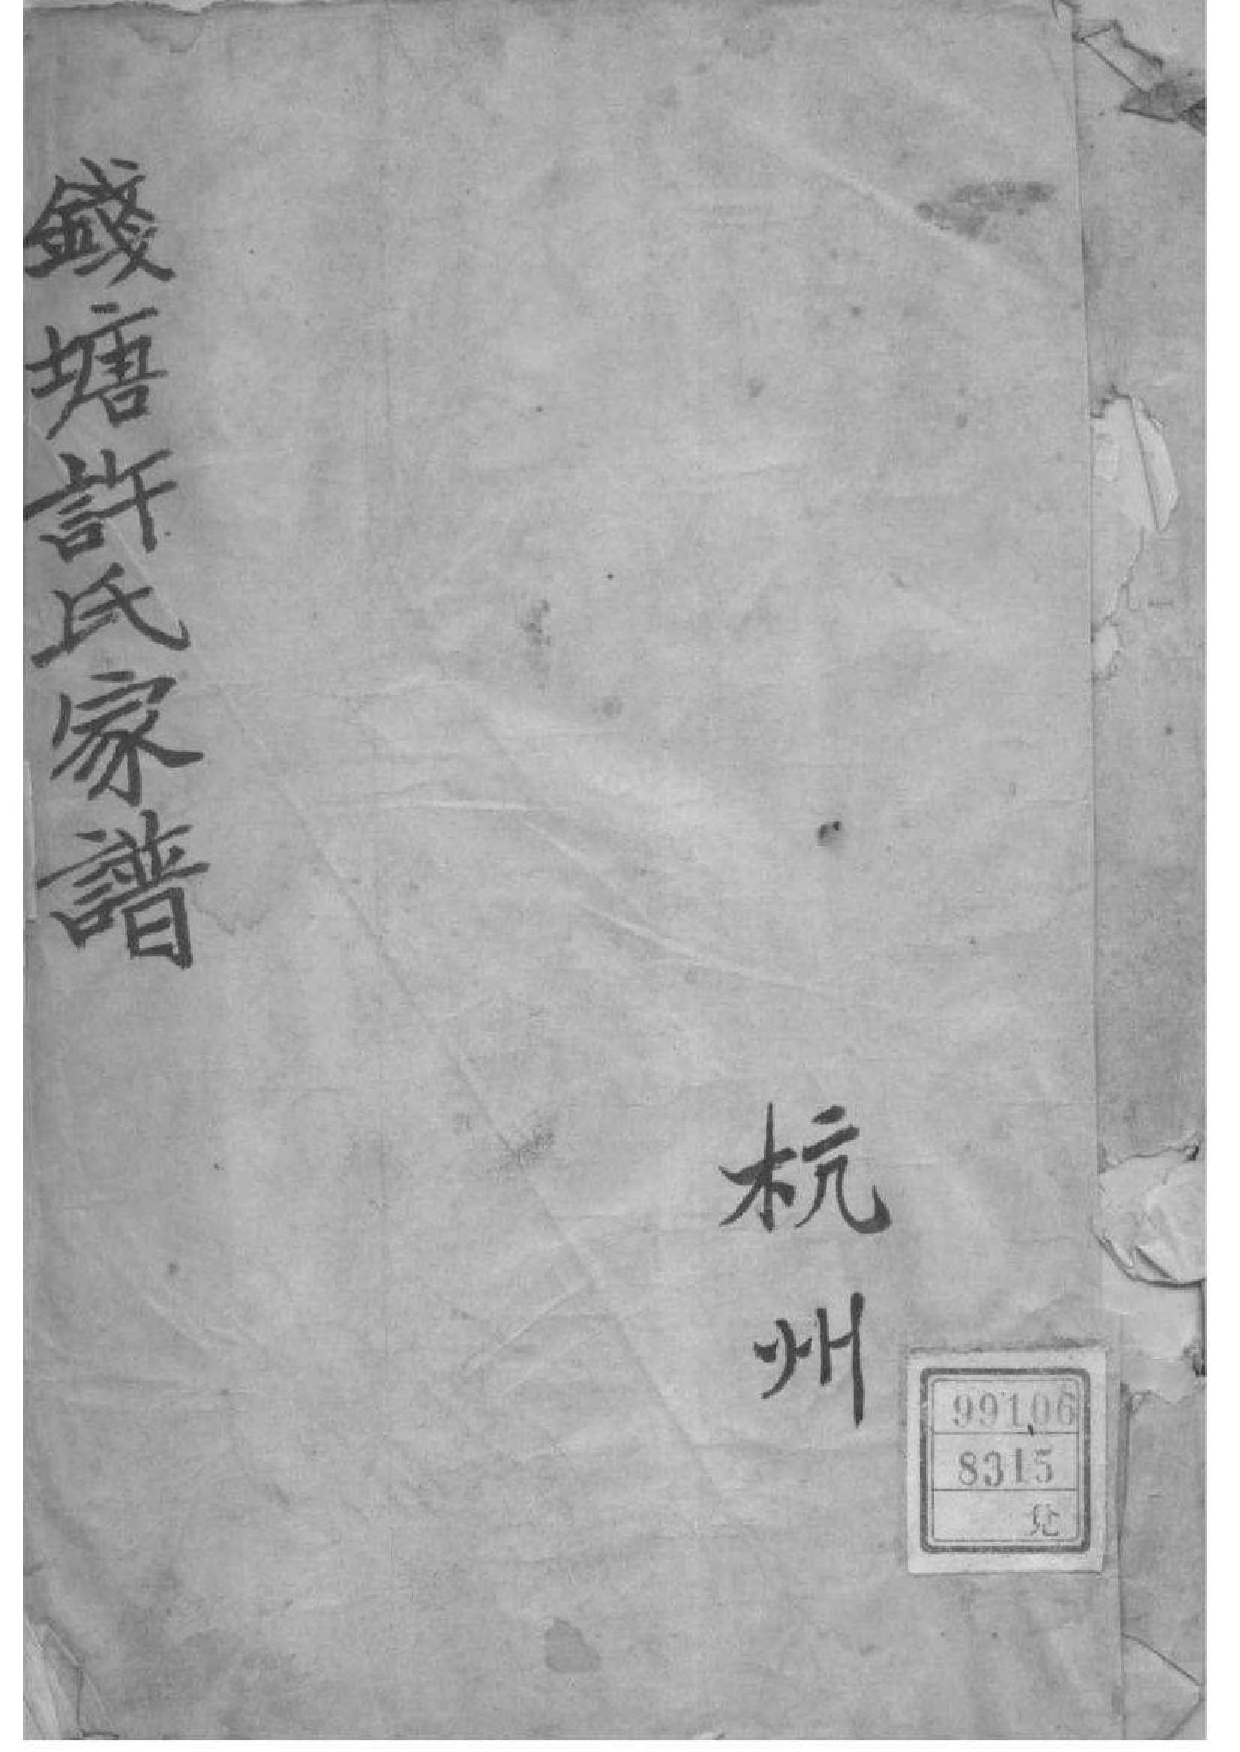 錢塘許氏家譜
杭州
99106
8315